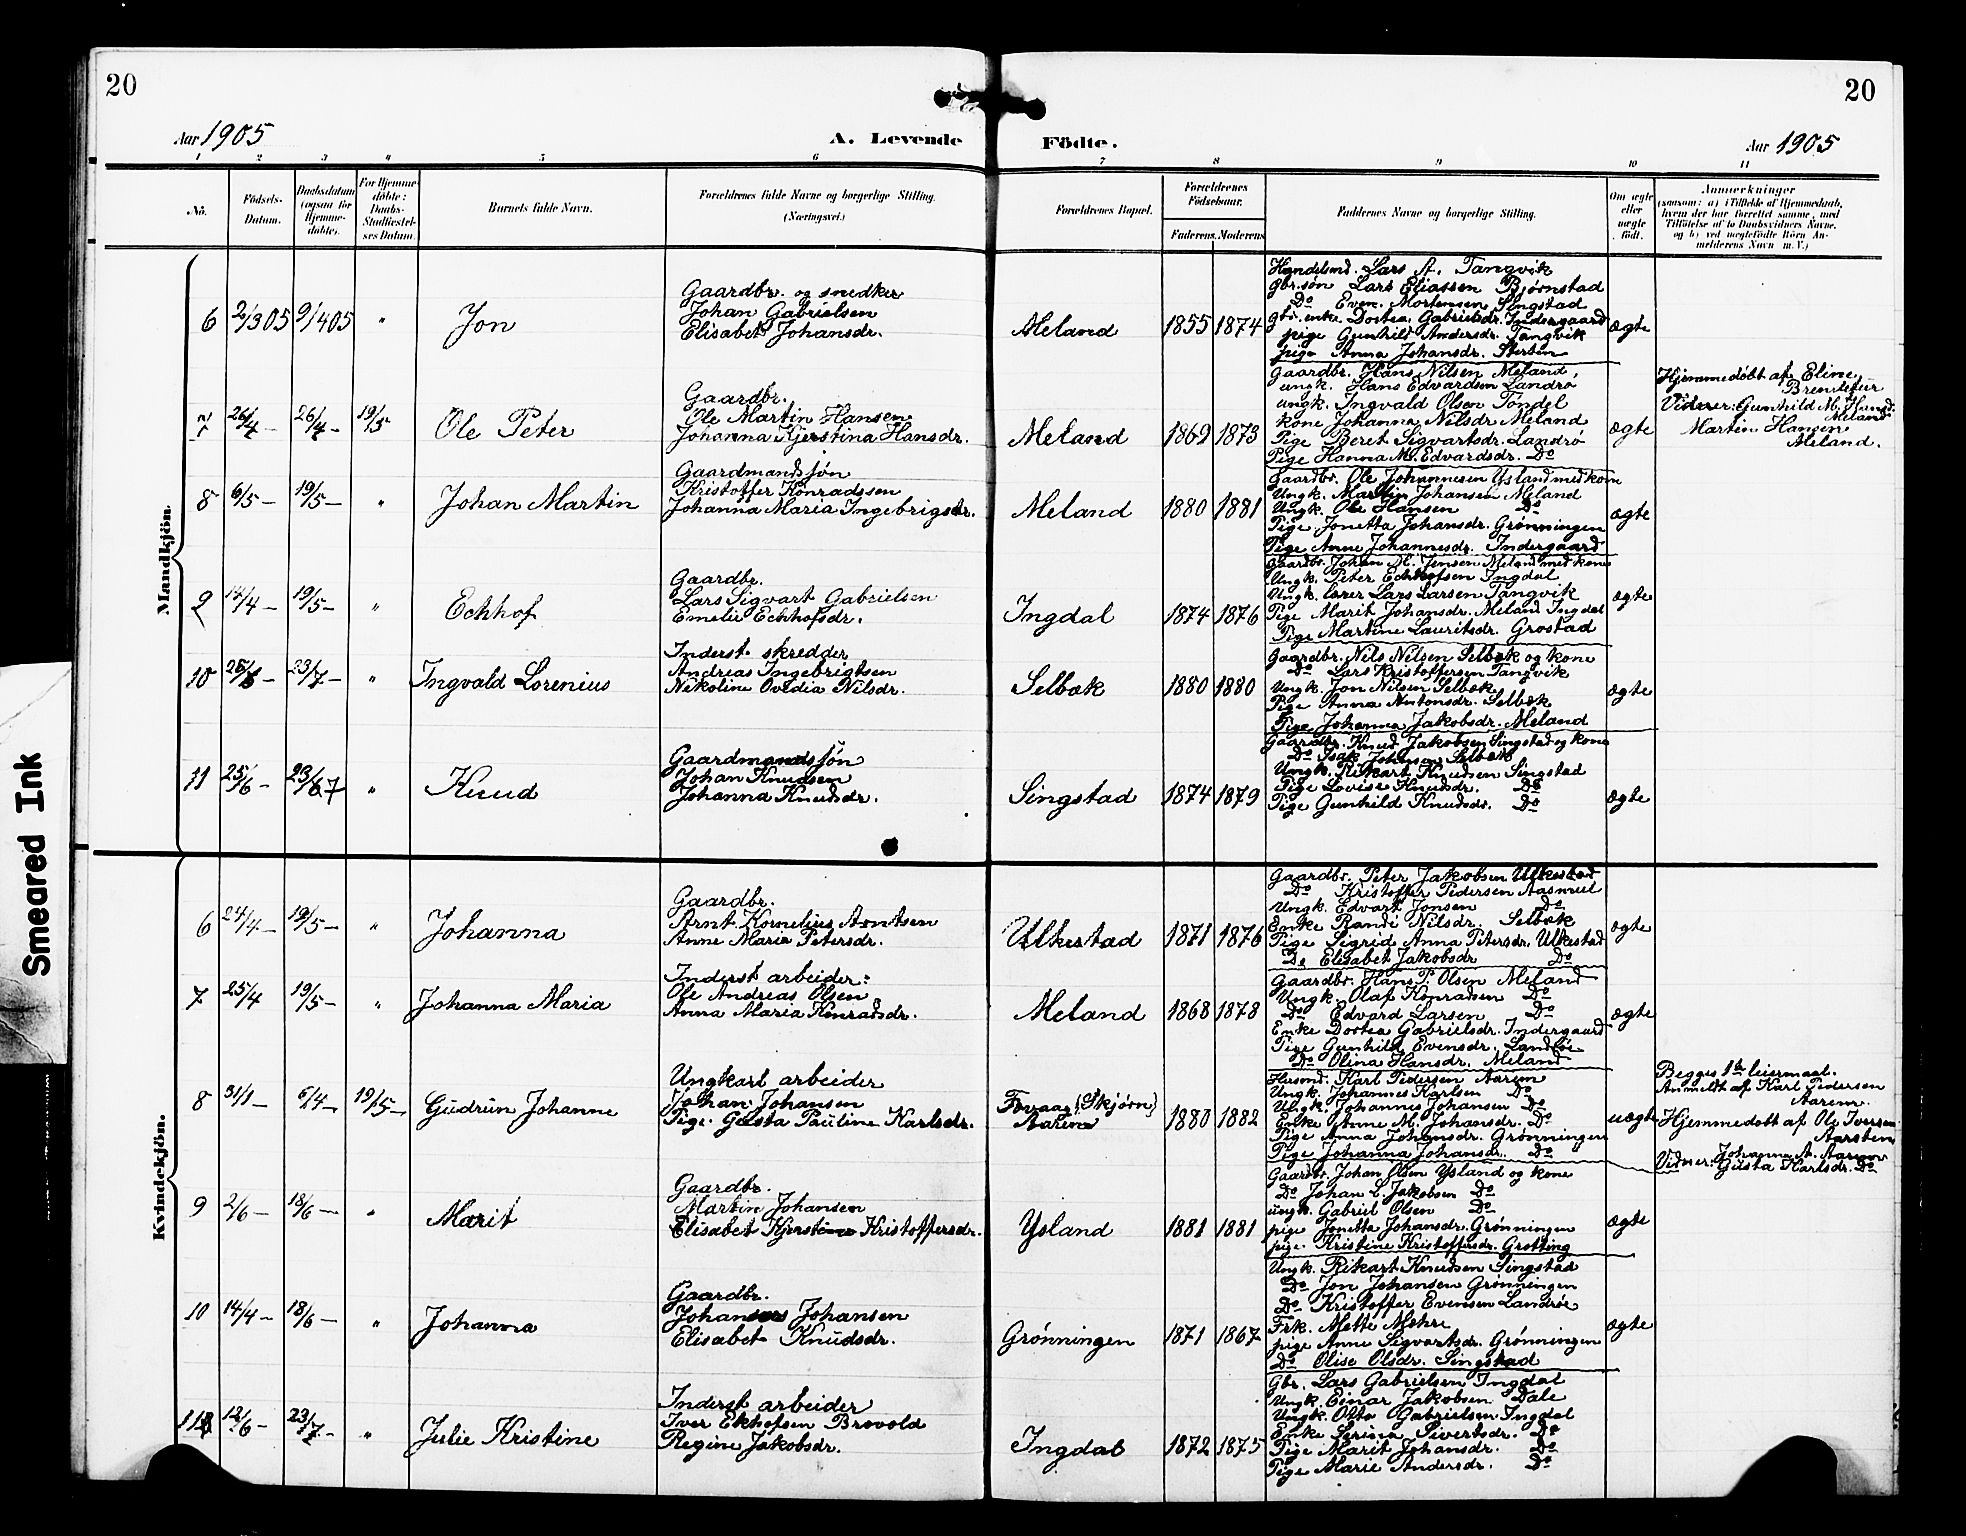 20
20
Aar 1905
A. Levende
Födte.
Aar 1905
1 2 3 4 5 6 7 8 9 10 11
No.
Födsels-
Datum.
Daabsdatum
(ogsaa for
Hjemme-
döbte).
For Hjemme-
döbte:
Daabs-
Stadfæstel-
ses Datum.
Barnets fulde Navn.
Forældrenes fulde Navne og borgerlige Stilling.
(Næringsvei.)
Forældrenes Bopæl.
Forældrenes
Födselsaar.
Faderens.
Moderens.
Faddernes Navne og borgerlige Stilling.
Om ægte
eller
uægte
födt.
Anmærkninger
(saasom: a) i Tilfælde af Hjemmedaab,
hvem der har forrettet samme, med
Tilföielse af to Daabsvidners Navne,
og b) ved uægtefödte Börn An-
melderens Navn m. V.)
Mandkjön.
6 2/3 05 9/4 05 " Jon
Gaardbr. og snedker
Johan Gabrielsen
Elisabet Johansdr.
Meland 1855 1874
Handelsmd. Lars A. Tangvik
gbr.søn Lars Eliassen Bjørnstad
Do Even Mortensen Singstad
gbr. enke Dortea Gabrielsdr. Indergaard
pige Gunhild Andersdr. Tangvik
pige Anna Johansdr. Sterten
ægte
7 26/4 – 26/4 – 19/5 Ole Peter
Gaardbr.
Ole Martin Hansen
Johanna Kjerstina Hansdr.
Meland 1869 1873
Gaardbr. Hans Nilsen Meland,
ungk. Hans Edvardsen Landrø
ungk. Ingvald Olsen Tøndel
kone Johanna Nilsdr. Meland
Pige Beret Sigvartsdr. Landrø
Pige Hanna M. Edvardsdr. Do
ægte
Hjemmedøbt af Eline
Vidner: Gunhild M. Hansd.
Meland
Martin Hansen
Meland.
8 6/5 – 19/5 – " Johan Martin
Gaardmandssøn
Kristoffer Konradssen
Johanna Maria Ingebrigtsdr.
Meland 1880 1881
Gaardbr. Ole Johannesen Ysland med kone
Ungk. Martin Johansen Meland
Ungk. Ole Hansen Do
Pige Jonetta Johansdr. Grønningen
Pige Anne Johannesdr. Indergaard
ægte
9 14/4 – 19/5 – " Echhof
Gaardbr.
Lars Sigvart Gabrielsen
Emelie Echhofsdr.
Ingdal 1874 1876
Gaardbr. Johan M. Jensen Meland med kone
Ungk. Peter Echhofsen Ingdal
Ungk. lærer Lars Larsen Tangvik
Pige Marit Johansdr. Meland Ingdal
Pige Martine Lauritsdr. Grostad
ægte
10 23/7 – " Ingvald Lorenius
Inderst. skredder
Andreas Ingebrigtsen
Nikoline Ovedia Nilsdr.
Selbæk 1880 1880
Gaardbr. Nils Nilsen Selbæk og kone
Do Lars Kristoffersen Tangvik
Ungk. Jon Nilsen Selbæk
Pige Anna Antonsdr. Selbæk
Pige Johanna Jakobsdr. Meland
ægte
11 25/6 – 23/7 " Knud
Gaardmandssøn
Johan Knudsen
Johanna Knudsdr.
Singstad 1874 1879
Gaardbr. Knud Jakobsen Singstad og kone
Do Isak Johansen Selbæk
Ungk. Rikart Knudsen Singstad
Pige Lovise Knudsdr. Do
Pige Gunhild Knudsdr. Do
ægte
Kvindekjön.
6 24/4 – 19/5 – " Johanna
Gaardbr.
Arnt Kornelius Arntsen
Anne Maria Petersdr.
Ulkestad 1871 1876
Gaardbr. Peter Jakobsen Ulkestad
Do Kristoffer Pedersen Aasmul
Ungk. Edvart Jonsen Do
Enke Randi Nilsdr. Selbæk
Pige Sigrid Anna Petersdr. Ulkestad
Do Elisabet Jakobsdr Do
ægte
7 25/4 19/5 – " Johanna Maria
Inderst arbeider:
Ole Andreas Olsen
Anna Maria Konradsdr.
Meland 1868 1878
Gaardbr. Hans P. Olsen Meland
Ungk. Olaf Konradsen Do
Do Edvard Larsen Do
Enke Dortea Gabrielsdr. Indergaard
Pige Gunhild Evensdr. Landrøe
Do Olina Hansdr. Meland
ægte
8 31/1 – 6/4 – 19/5 – Gudrun Johanne
Ungkarl arbeider
Johan Johansen
Pige Gusta Pauline Karlsdr.
(Skjørn)
Aarem
1880 1882
Husmd. Karl Pedersen Aarem
Ungk. Johannes Karlsen Do
Ungk. Johannes Johansen Do
Enke Anne M. Johansdr. Do
Pige Anna Johansdr. Grønningen
Pige Johanna Johansdr. Do
uægte
Begges 1ste leiermaal.
Anmeldt af Karl Pedersen
Aarem.
Hjemmedøbt af Ole Iversen
Aarsten
Vidner: Johanna A. Aarem
Gusta Karlsdr. Do
9 2/6 – 18/6 – " Marit
Gaardbr.
Martin Johansen
Elisabet Kjerstine Kristoffersdr.
Ysland 1881 1881
Gaardbr. Johan Olsen Ysland og kone
Do Johan L. Jakobsen Do
ungk. Gabriel Olsen Do
pige Jonetta Johansdr. Grønningen
pige Kristine Kristoffersdr. Grotting
ægte
10 14/4 – 18/6 – " Johanna
Gaardbr.
Johannes Johansen
Elisabet Knudsdr.
Grønningen 1871 1867
Ungk. Rikart Knudsen Singstad
Do Jon Johansen Grønningen
Do Kristoffer Evensen Landrøe
Frk. Mette Mehre
pige Anne Sigvartsdr. Grønningen
Do Olise Olsdr. Singstad
ægte
11 12/6 – 23/7 – " Julie Kristine
Inderst arbeider
Iver Ekhofsen Brovold
Regine Jakobsdr.
Ingdal 1872 1875
Gbr. Lars Gabrielsen Ingdal
Ungk. Einar Jakobsen Dale
Ungk. Otto Gabrielsen Ingdal
Enke Serina Sivertsdr. Do
Pige Marit Johansdr. Do
Pige Marie Andersdr. Do
Smeared Ink